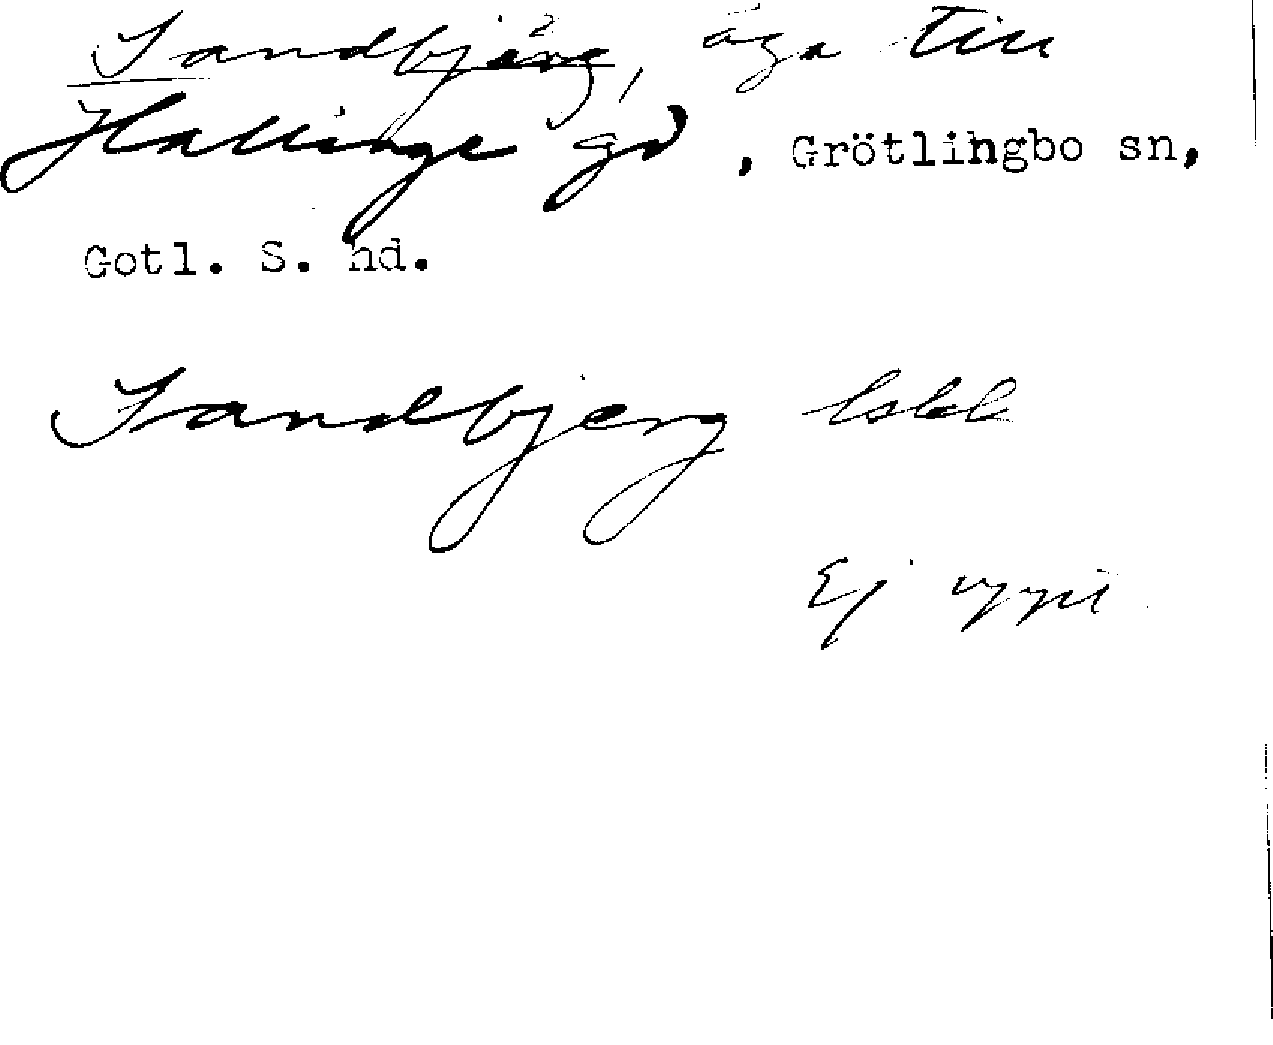 Sandbjärg, äga till
Hallinge gd, Grötlingbo sn,
Gotl. S. hd.
Sandbjerg
Ej